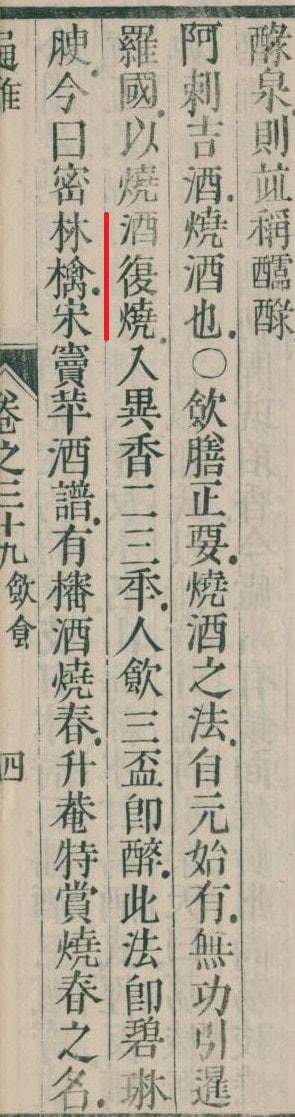 醁泉則並稱醽醁
阿剌吉酒燒酒也○飲膳正要燒酒之法自元始有無功引暹
羅國以燒酒復燒入異香二三年人飲三盃卽醉此法卽碧琳
腴今曰密林檎宋竇苹酒譜有㰂酒燒春升菴特賞燒春之名
通雅 卷之三十九飲食 四